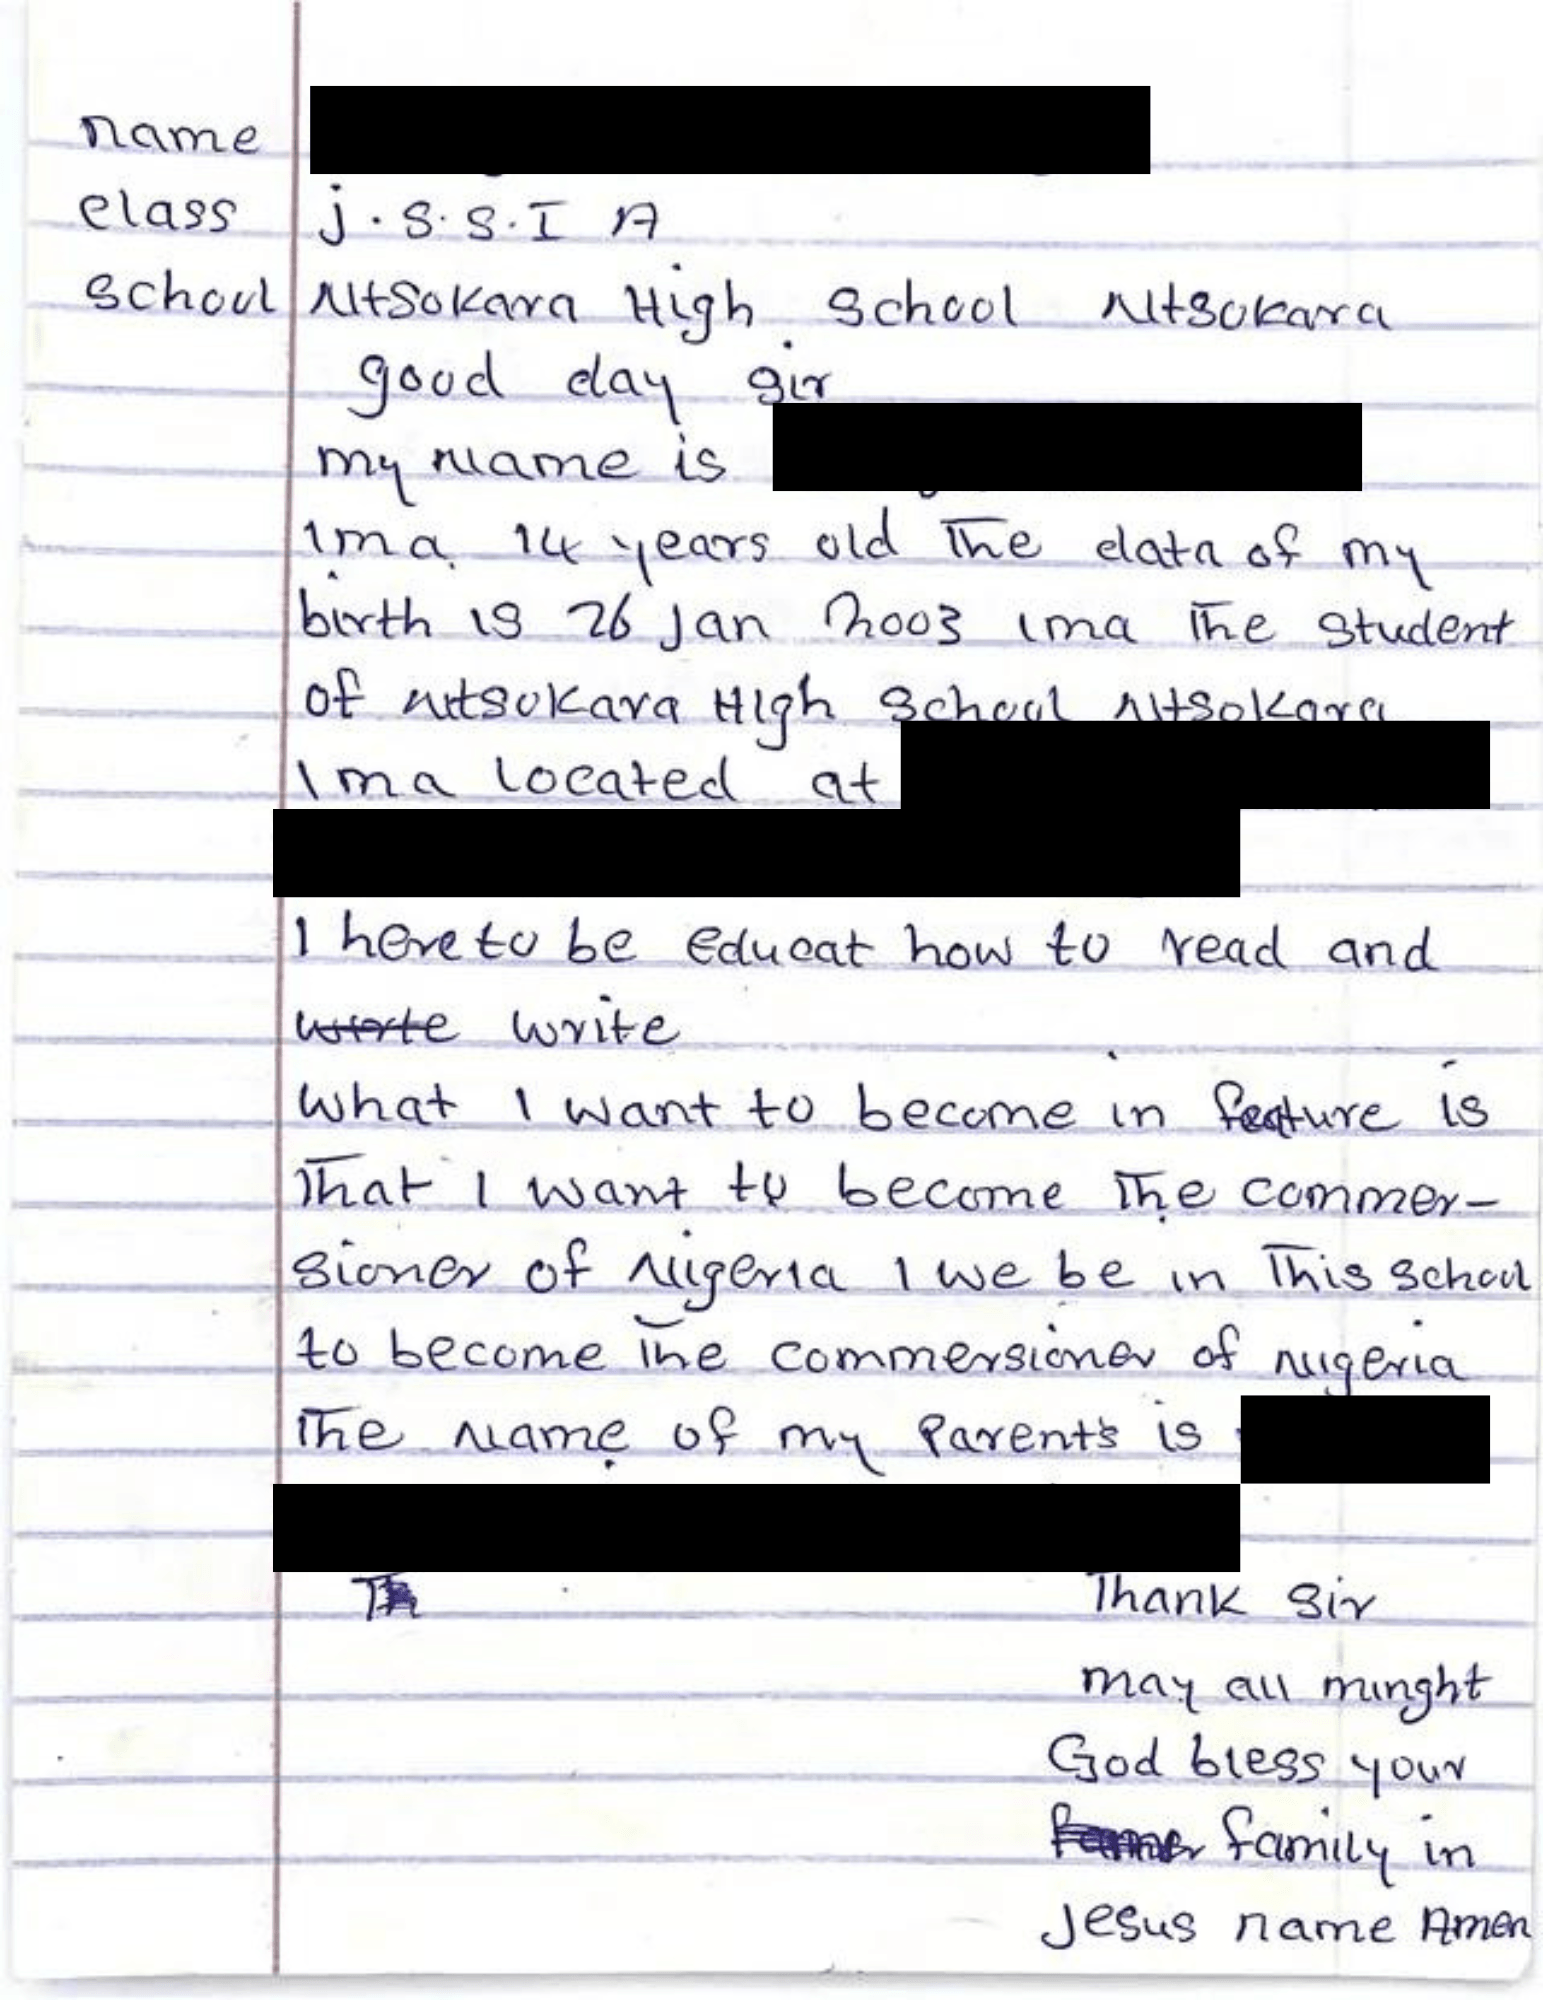 name
class j.s.s.I A
school Ntsokara High School Ntsokara
good day sir
my name is
Ima 14 years old The data of my
birth is 26 Jan 2003 Ima The student
of Ntsokara High School Ntsokara
Ima located at
I here to be educat how to read and
write
what I want to become in feature is
That I want to become The commer-
sioner of Nigeria I we be in This school
to become the commersioner of Nigeria
The Name of my Parents is
Thank sir
may all minght
God bless your
family in
Jesus name Amen